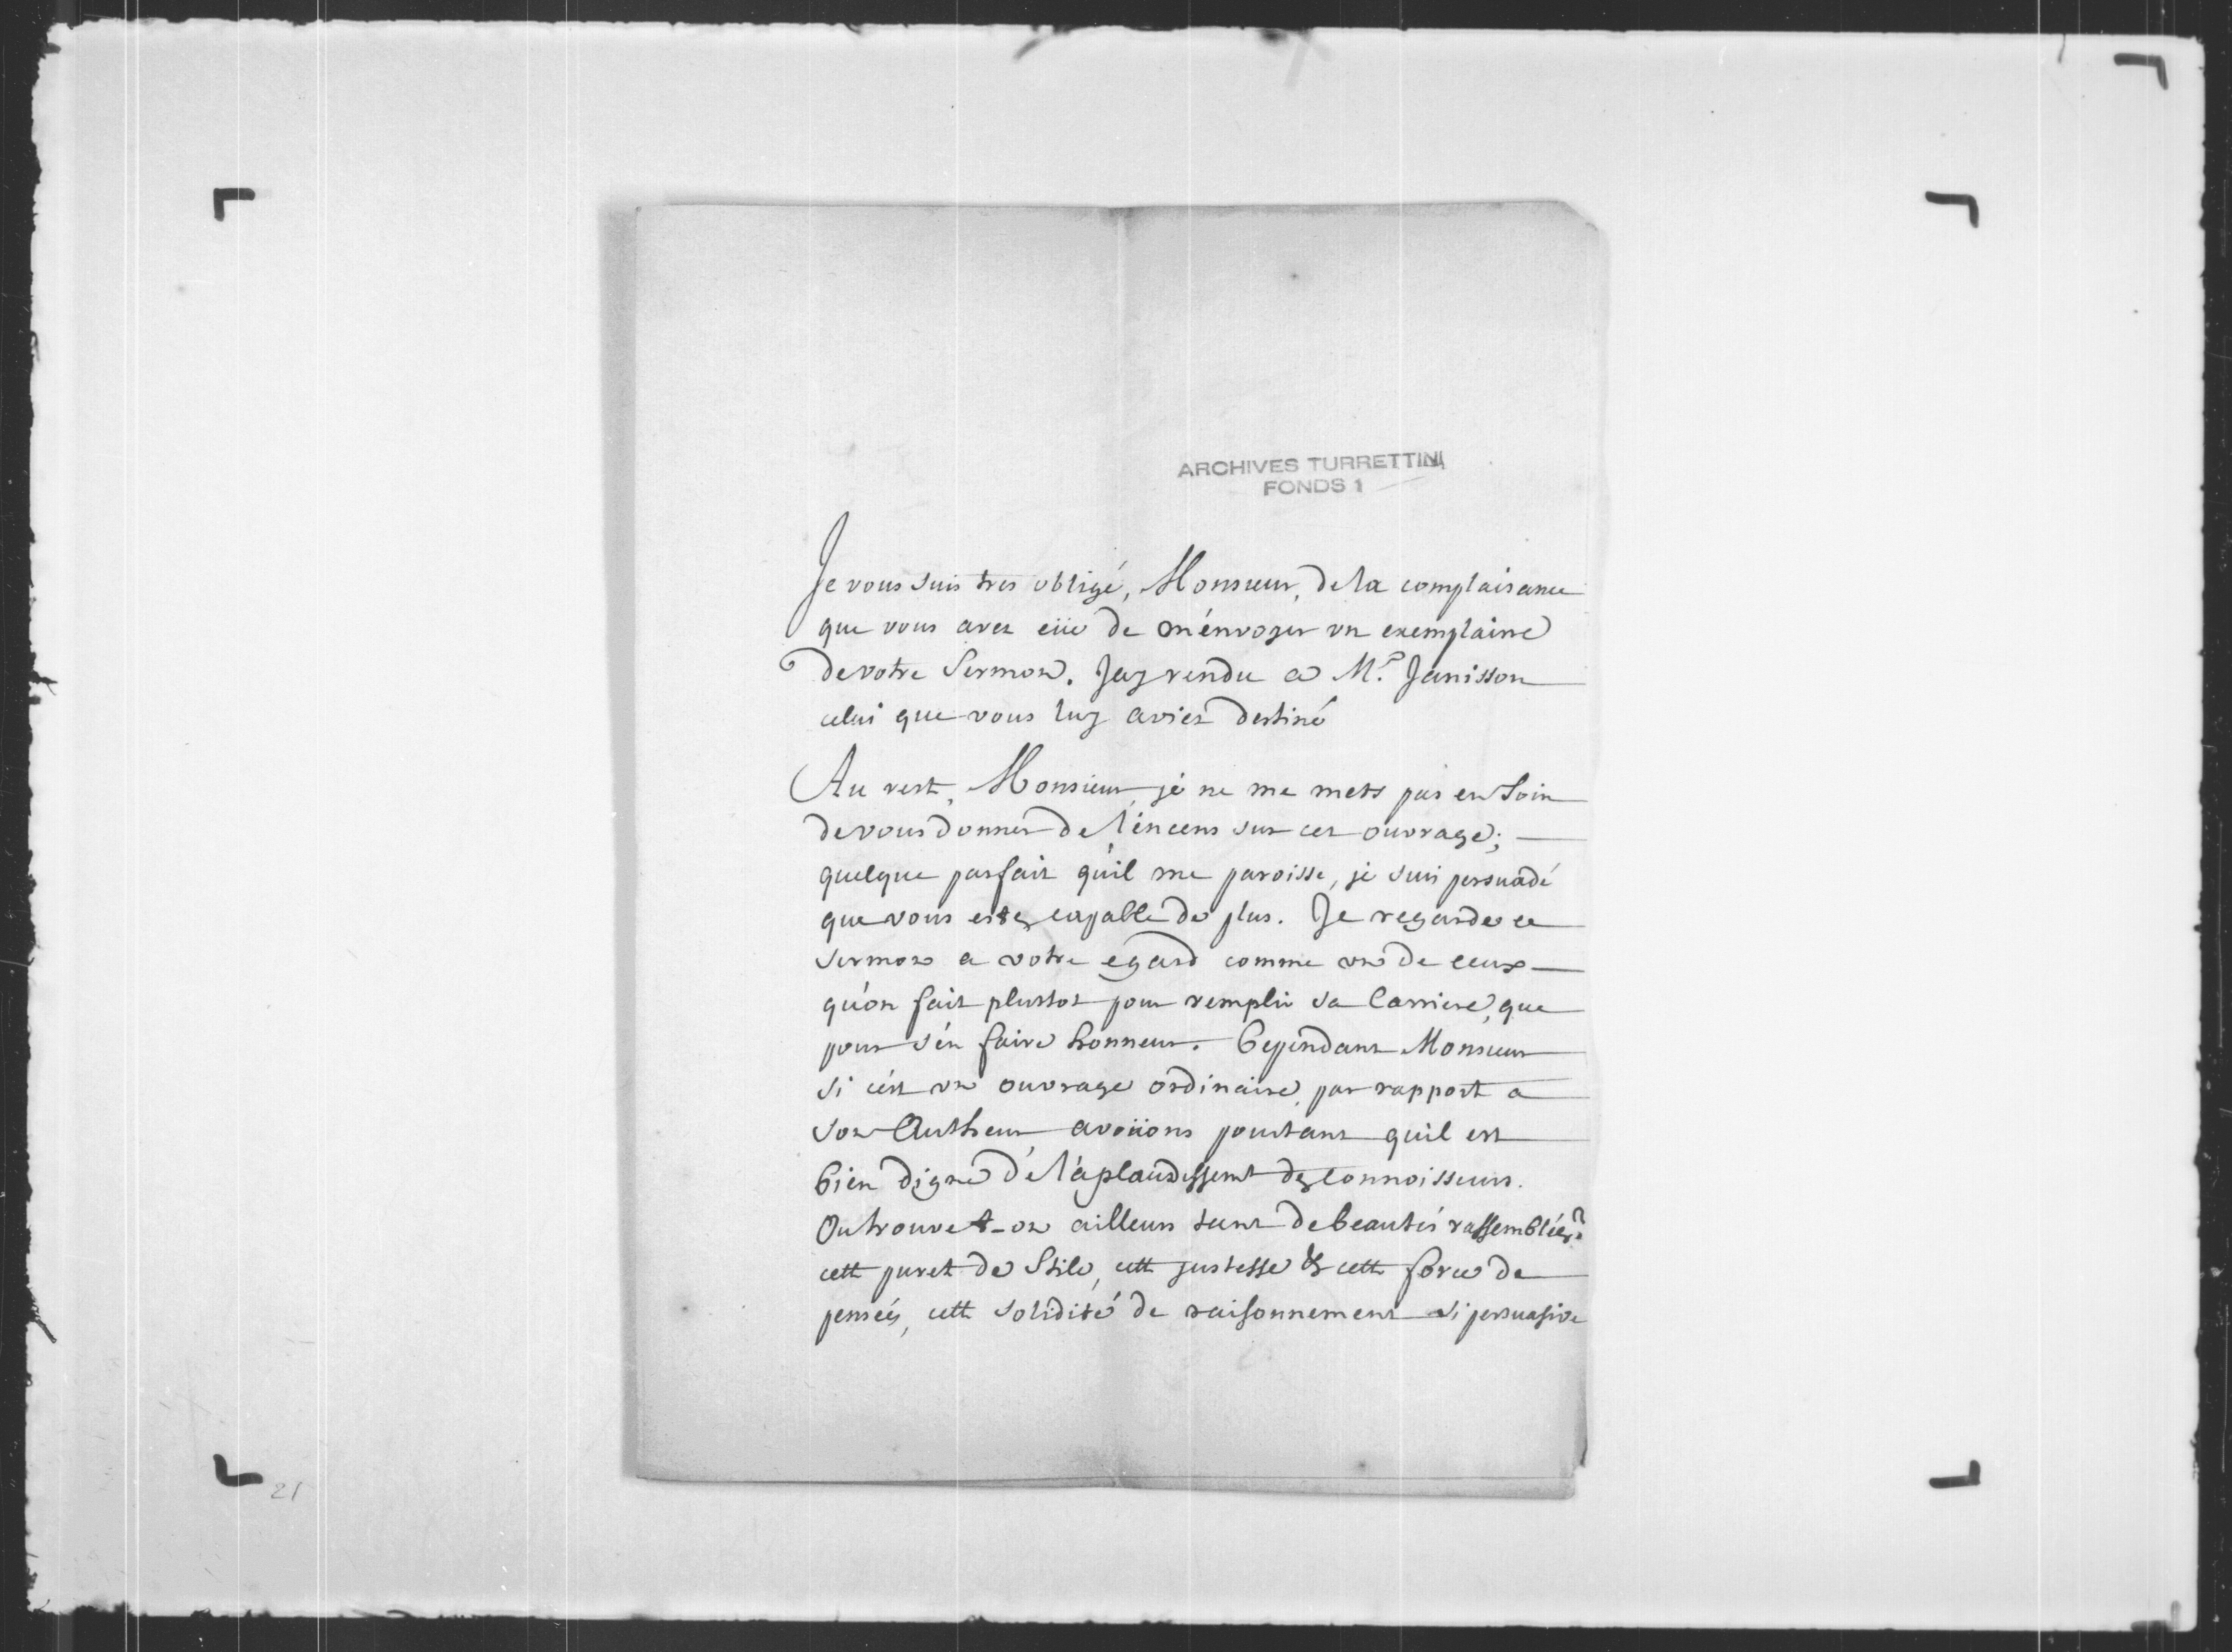 ARCHIVES TURRETTINI
FONDS 1
Je vous suis tres obligé, Monsieur, de la complaisance
que vous avez eüe de m'énvoyer un exemplaire
de votre Sermon. Jay rendu a Mr. Janisson
celui que vous luy aviez destiné
Au rest, Monsieur, je ne me mets pas en Soin
de vous donner de l'éncens sur cet ouvrage;
quelque parfait qu'il me paroisse, je suis persuadé
que vous estes capable de plus. Je regarde ce
sermon a votre egard comme un de ceux
qu'on fait plustot pour remplir sa Carriere, que
pour s'én faire honneur. Cependant Monsieur
si c'ést un ouvrage ordinaire, par rapport a
son Autheur avoüons pourtant qu'il est
bien digne de l'aplaudissemt des connoisseurs.
Ou trouve t-on ailleurs tant de beautés rassemblées?
cett puret de Stile, cett justesse & cett force de
pensées, cett solidité de raisonnement si persuasive
21